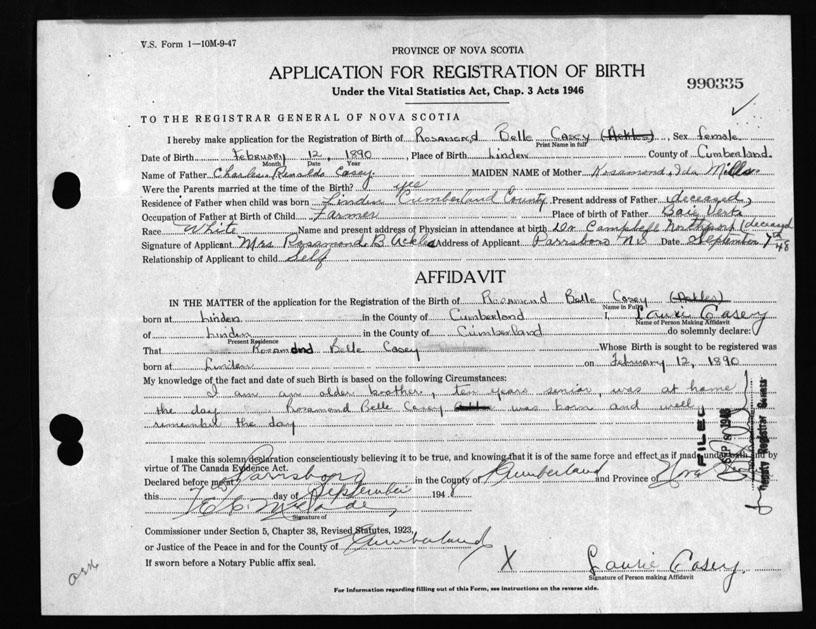 V.S. Form 1—10M-9-47
PROVINCE OF NOVA SCOTIA
APPLICATION FOR REGISTRATION OF BIRTH
Under the Vital Statistics Act, Chap. 3 Acts 1946
990335
TO THE REGISTRAR GENERAL OF NOVA SCOTIA
I hereby make application for the Registration of Birth of Rosamond Belle Casey (Ackles), Sex female
Print Name in full
Date of Birth February 12, 1890, Place of Birth Linden County of Cumberland.
Month Date Year
Name of Father Charles Renaldo Casey. MAIDEN NAME of Mother Rosamond Ida Mills.
Were the Parents married at the time of Birth? yes
Residence of Father when child was born Linden Cumberland County Present address of Father (deceased)
Occupation of Father at Birth of Child Farmer Place of Birth of Father Baie Verte
Race White Name and present address of Physician in attendance at birth Dr. Campbell Northport (deceased
Signature of Applicant Mrs Rosamond B Ackles Address of Applicant Parrsboro NS Date September 7th 48
Relationship of Applicant to child Self
AFFIDAVIT
IN THE MATTER of the application for the Registration of the Birth of Rosamond Belle Casey (Ackles)
Name in Full
born at Linden in the County of Cumberland I, Laurie Casey
Name of Person Making Affidavit
of Linden in the County of Cumberland do solemnly declare:
Present Residence
That Rosamond Belle Casey Whose Birth is sought to be registered was
born at Linden on February 12, 1890
My knowledge of the fact and date of such Birth is based on the following Circumstances:
I am an older brother, ten years senior, was at home
the day Rosamond Belle Casey was born and well
remember the day
I make this solemn declaration conscientiously believing it to be true, and knowing that it is of the same force and effect as if made under oath and by
virtue of The Canada Evidence Act.
Declared before me at Parrsboro in the County of Cumberland and Province of Nova Scotia
this 7 day of September 1948
Signature of
Commissioner under Section 5, Chapter 38, Revised Statutes, 1923,
or Justice of the Peace in and for the County of Cumberland
If sworn before a Notary Public affix seal.
X Laurie Casey.
Signature of Person making Affidavit
For Information regarding filling out of this Form, see instructions on the reverse side.
FILED
SEP 8 1948
Deputy Registrar General